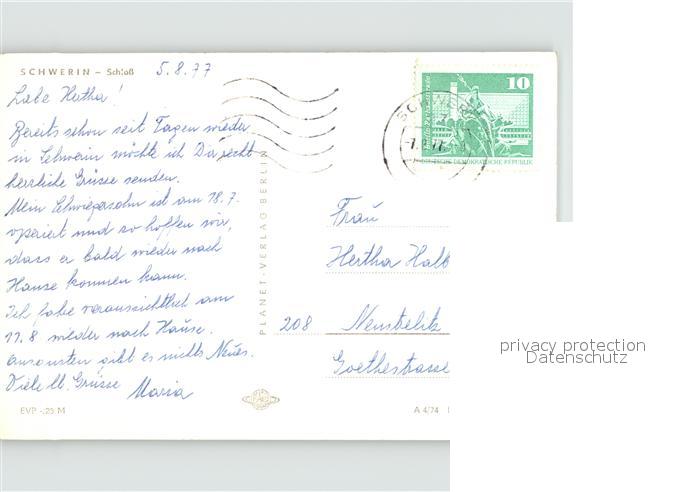 SCHWERIN – Schloß
5.8.77
Liebe Hertha!
Bereits schon seit Tagen wieder
in Schwerin möchte ich Dir recht
herzliche Grüsse senden.
Mein Schwiegersohn ist am 18.7.
operiert und so hoffen wir,
dass er bald wieder nach
Hause kommen kann.
Ich fahre voraussichtlich am
11.8 wieder nach Hause.
Ansonsten gibt es nichts Neues.
Viele lb. Grüsse
Maria
EVP -.25 M
PLANET-VERLAG BERLIN
SCHWERIN
10
DEUTSCHE DEMOKRATISCHE REPUBLIK
Frau
Hertha Halb
208 Neustrelitz
Goethestrasse
A 4/74
privacy protection
Datenschutz